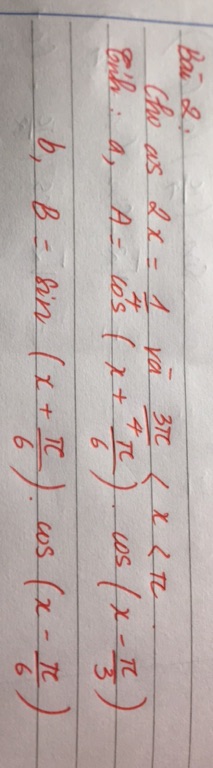 Bài 2:
Cho cos 2x = 1/4 và 3π/4 < x < π.
Tính: a, A = cos (x + π/6) . cos (x - π/3)
b, B = sin (x + π/6) . cos (x - π/6)